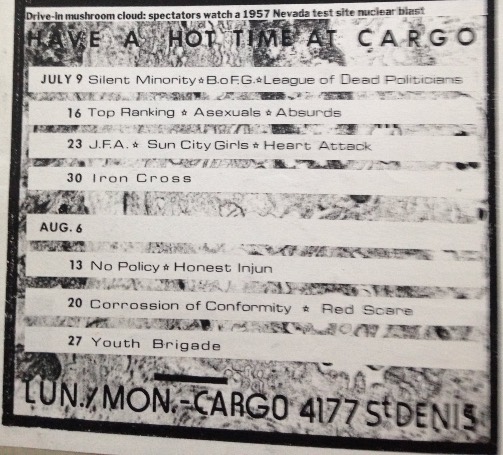 Drive-in mushroom cloud: spectators watch a 1957 Nevada test site nuclear blast
HAVE A HOT TIME AT CARGO
JULY 9 Silent Minority☆B.o F.G.☆League of Dead Politicians
16 Top Ranking ☆ Asexuals ☆ Absurds
23 J.F.A.☆ Sun City Girls ☆ Heart Attack
30 Iron Cross
AUG. 6
13 No Policy ☆ Honest Injun
20 Corrossion of Conformity ☆ Red Scare
27 Youth Brigade
LUN./MON.-CARGO 4177 St DENIS